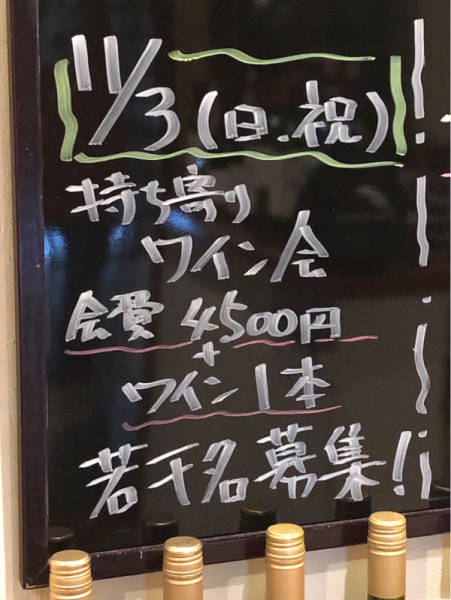 11/3(日.祝)
持ち寄り
ワイン会
会費 4500円
+
ワイン1本
若干名 募集!